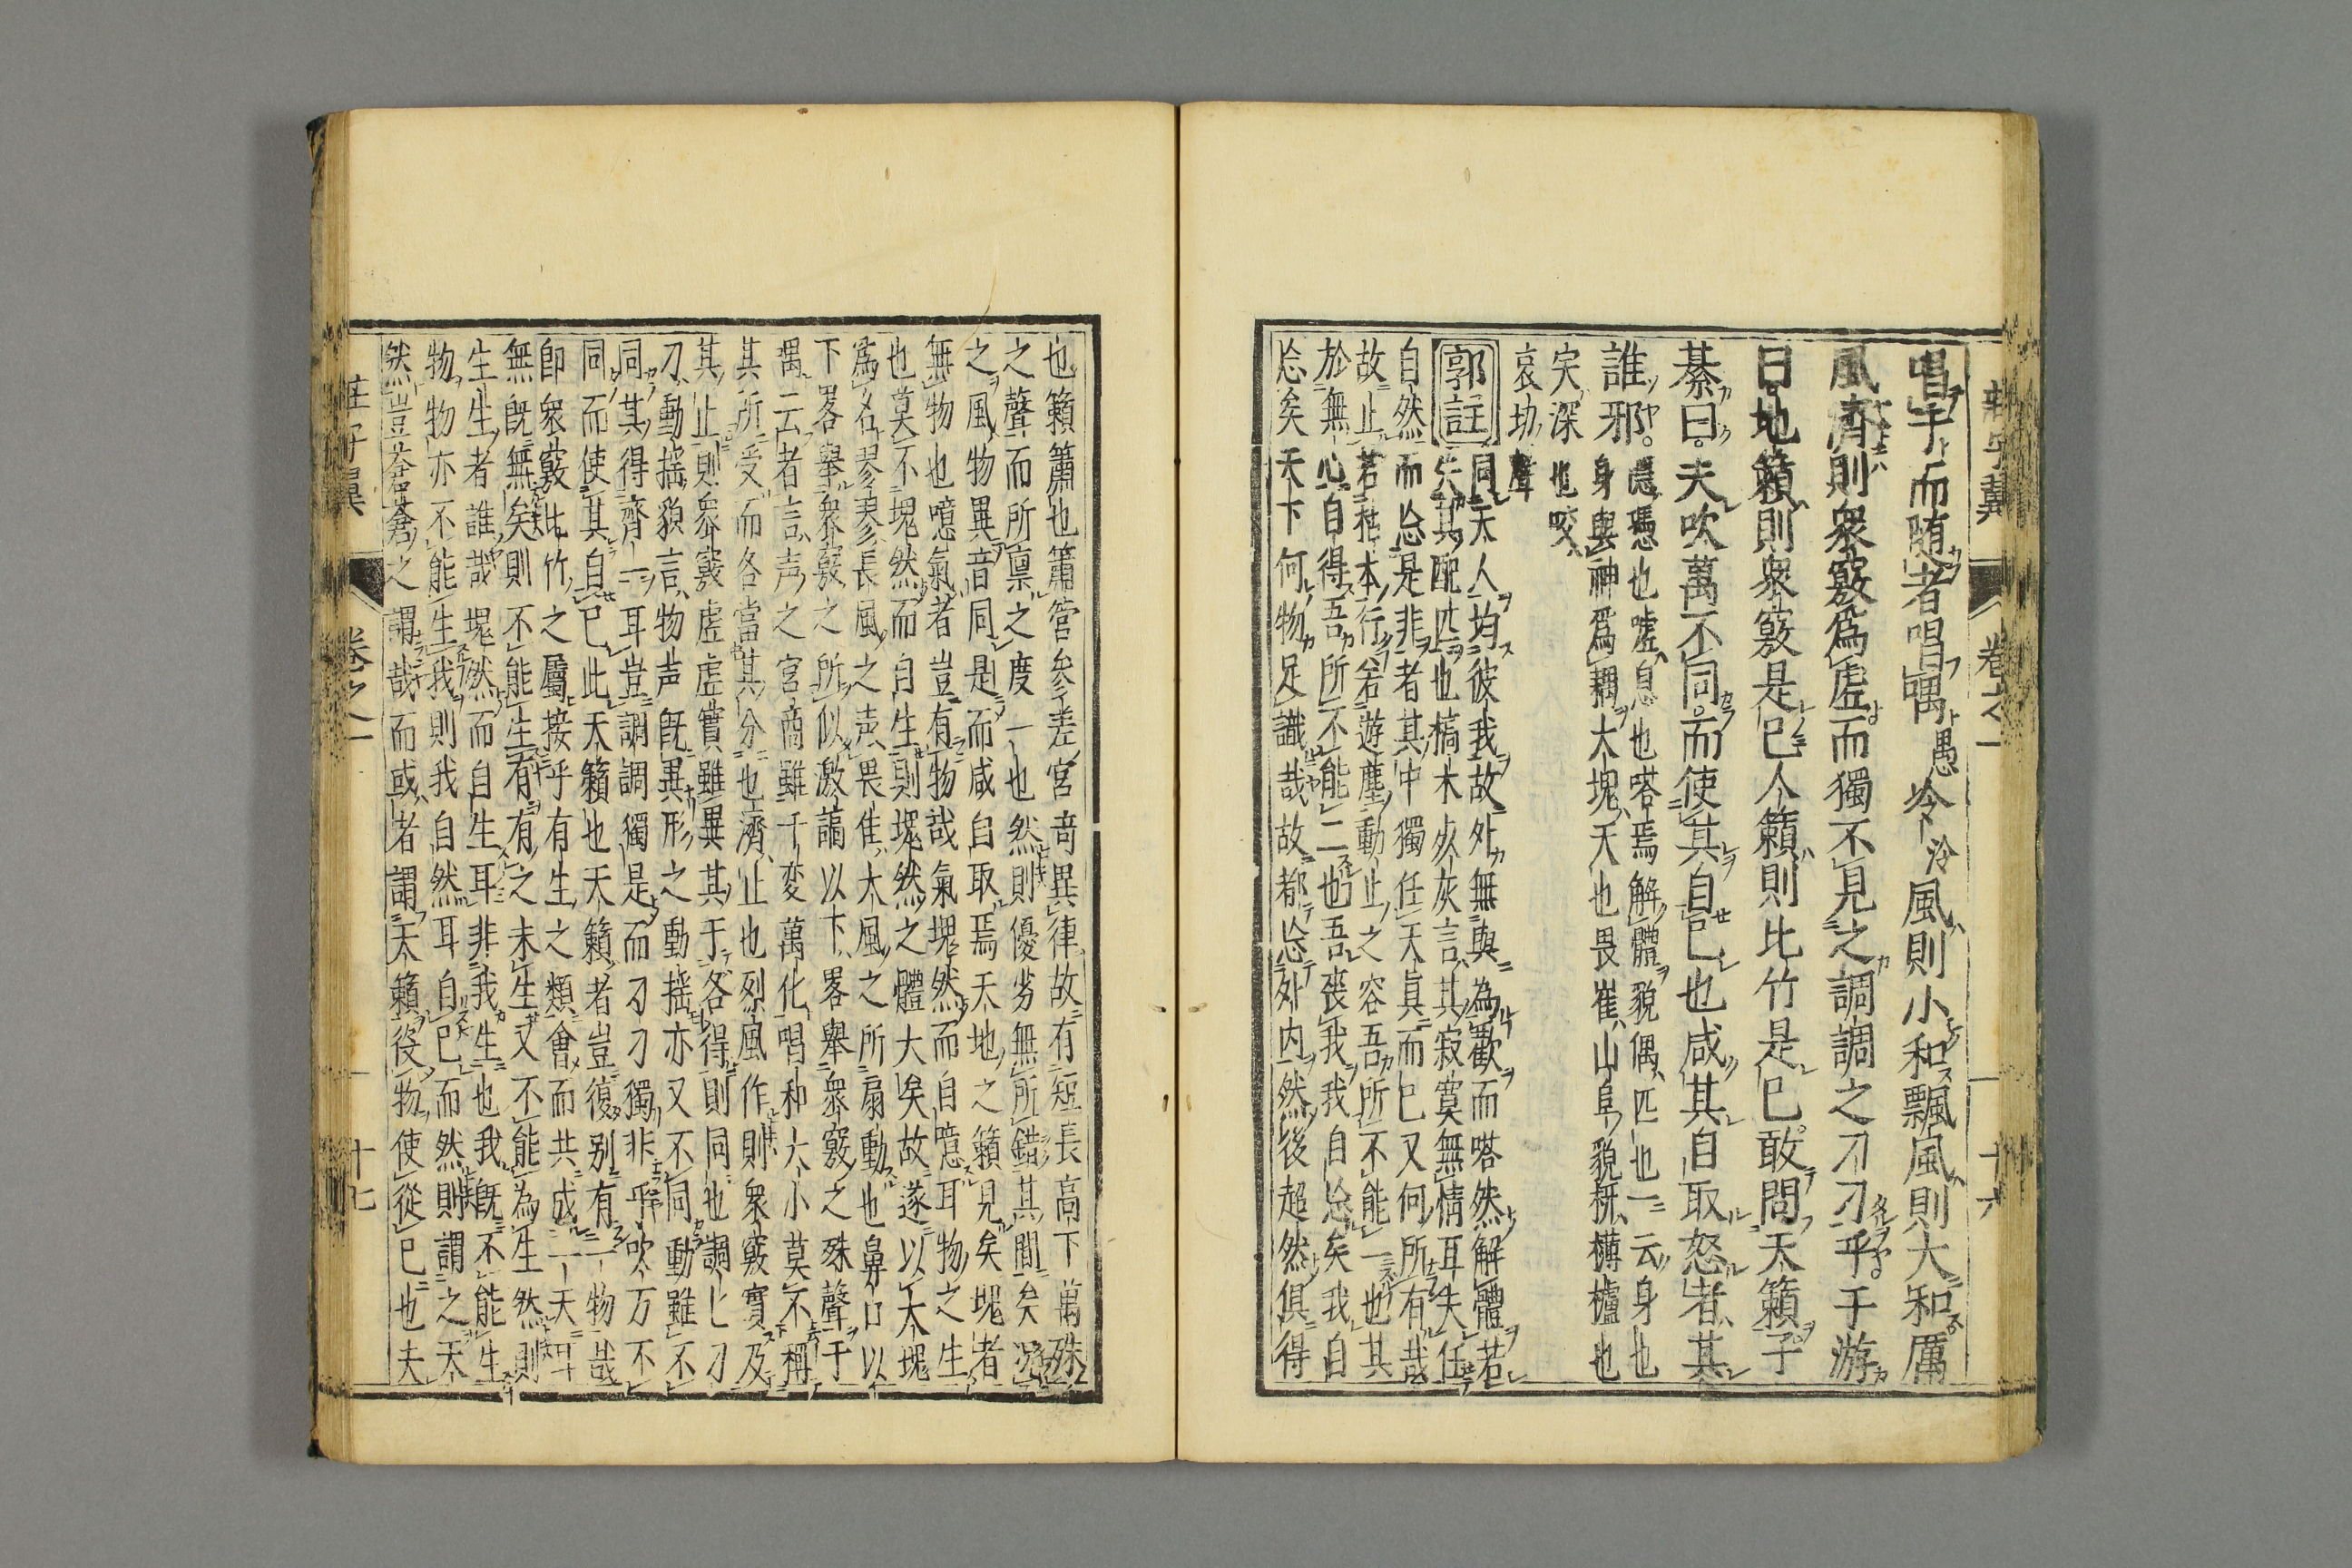 莊子翼
卷之一
十六
唱于而隨者唱喁愚冷泠風則小和飄風則大和厲
風濟則衆竅爲虛而獨不見之調調之刁刁乎子游
曰地籟則衆竅是已人籟則比竹是已敢問天籟子
綦曰夫吹萬不同而使其自已也咸其自取怒者其
誰邪隱憑也噓息也嗒焉解體貌偶匹也一云身也
身與神爲耦大塊天也畏崔山阜貌枅欂櫨也
宎深也咬
哀切聲
郭註同天人均彼我故外無與為歡而嗒然解體若
失其配匹也槁木灰言其寂寞無情耳夫任
自然而忘是非者其中獨任天眞而已又何所有哉
故止若枯木行若遊塵動止之容吾所不能一也其
於無心自得吾所不能二也吾喪我我自忘矣我自
忘矣天下何物足識哉故都忘外内然後超然俱得
也籟簫也簫管參差宮音異律故有短長高下萬殊
之聲而所禀之度一也然則優劣無所錯其間矣況
之風物異音同是而咸自取焉天地之籟見矣塊者
無物也噫氣者豈有物哉氣塊然而自噫耳物之生
也莫不塊然而自生則塊然之體大矣故遂以大塊
爲名翏翏長風之声畏佳大風之所扇動也鼻口以
下畧擧衆竅之所似激謞以下畧舉衆竅之殊聲于
喁云者言声之宮商雖千变萬化唱和大小莫不稱
其所受而各當其分也濟止也烈風作則衆竅實及
其止則衆竅虛虛實雖異其于各得則同也調匕刁
刁動揺貌言物声既異形之動揺亦又不同動雖不
同其得齊一耳豈調調獨是而刁刁獨非乎吹万不
同而使其自已此天籟也天籟者豈復别有一物哉
卽衆竅比竹之屬接乎有生之類會而共成一天耳
無既無矣則不能生有有之未生又不能為生然則
生生者誰哉塊然而自生耳非我生也我既不能生
物物亦不能生我則我自然耳自已而然則謂之天
然豈蒼蒼之謂哉而或者謂天籟役物使從已也夫
莊子翼
卷之一
十七